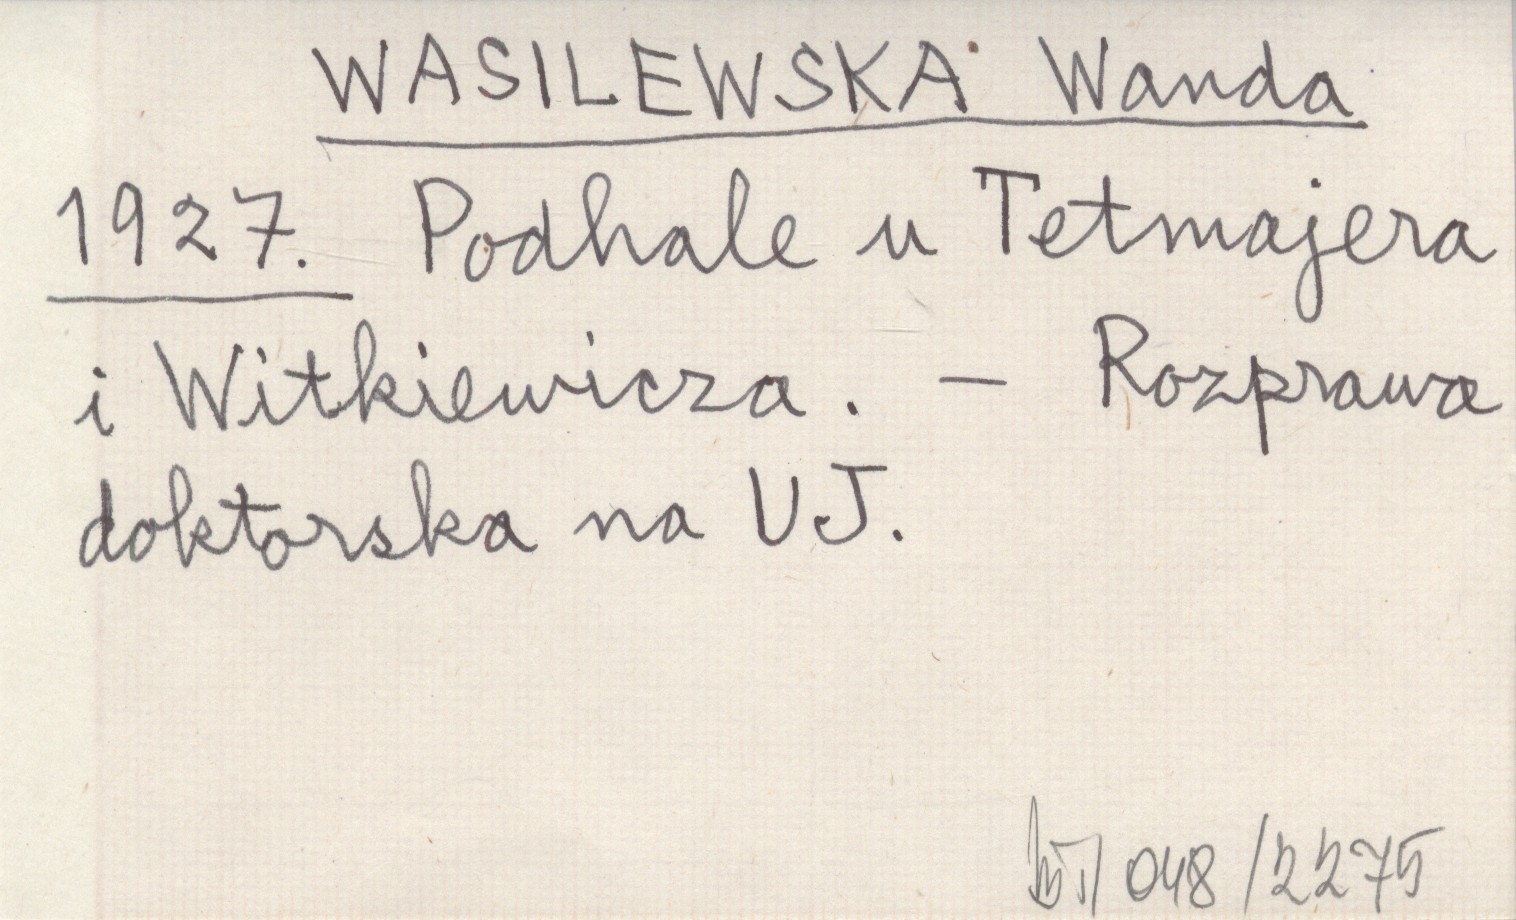 WASILEWSKA Wanda
1927. Podhale u Tetmajera
i Witkiewicza. — Rozprawa
doktorska na UJ.
048/2275